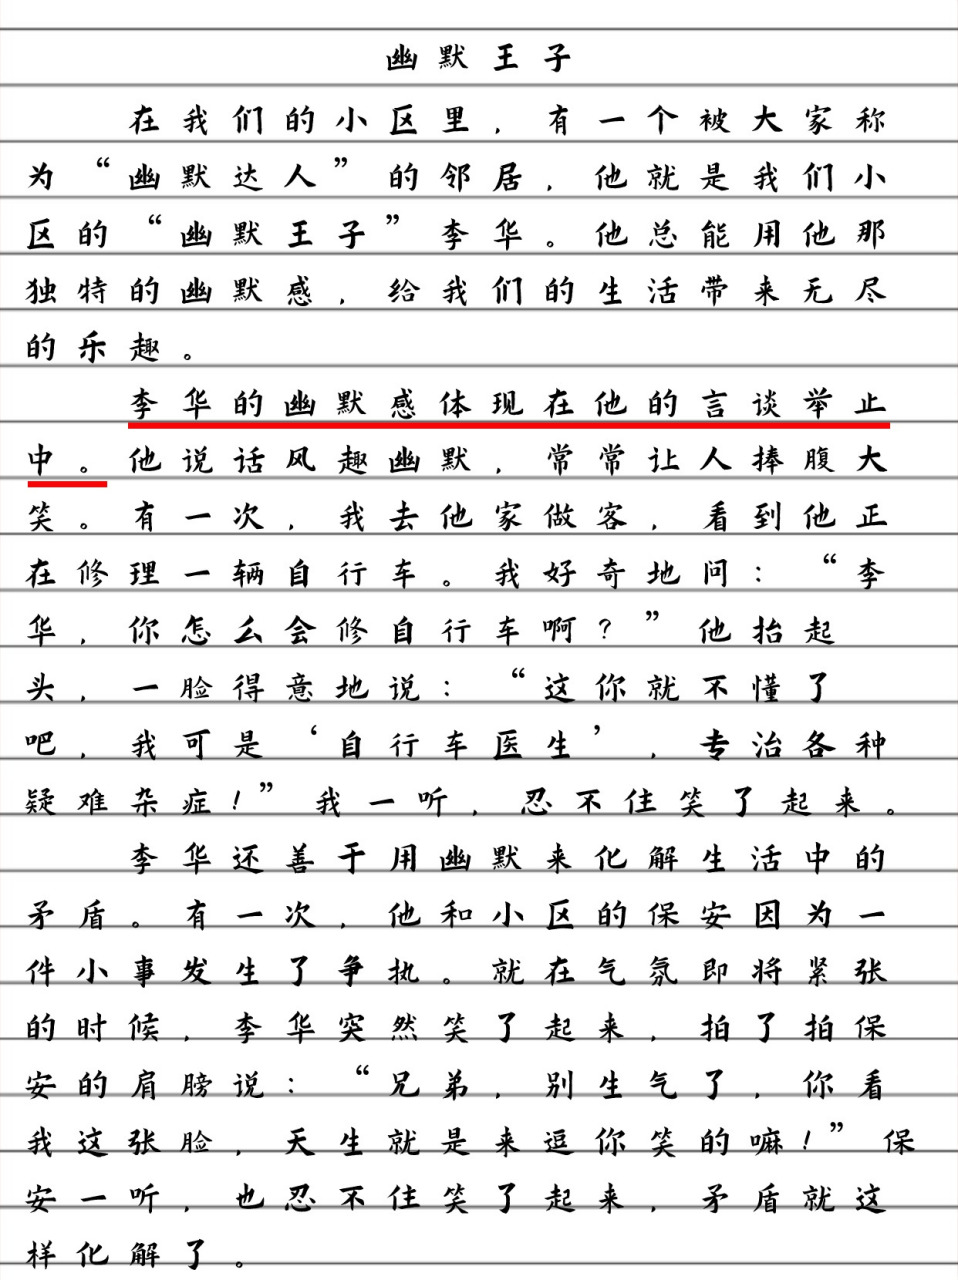 幽默王子
在我们的小区里，有一个被大家称
为“幽默达人”的邻居，他就是我们小
区的“幽默王子”李华。他总能用他那
独特的幽默感，给我们的生活带来无尽
的乐趣。
李华的幽默感体现在他的言谈举止
中。他说话风趣幽默，常常让人捧腹大
笑。有一次，我去他家做客，看到他正
在修理一辆自行车。我好奇地问：“李
华，你怎么会修自行车啊？”他抬起
头，一脸得意地说：“这你就不懂了
吧，我可是‘自行车医生’，专治各种
疑难杂症！”我一听，忍不住笑了起来。
李华还善于用幽默来化解生活中的
矛盾。有一次，他和小区的保安因为一
件小事发生了争执。就在气氛即将紧张
的时候，李华突然笑了起来，拍了拍保
安的肩膀说：“兄弟，别生气了，你看
我这张脸，天生就是来逗你笑的嘛！”保
安一听，也忍不住笑了起来，矛盾就这
样化解了。